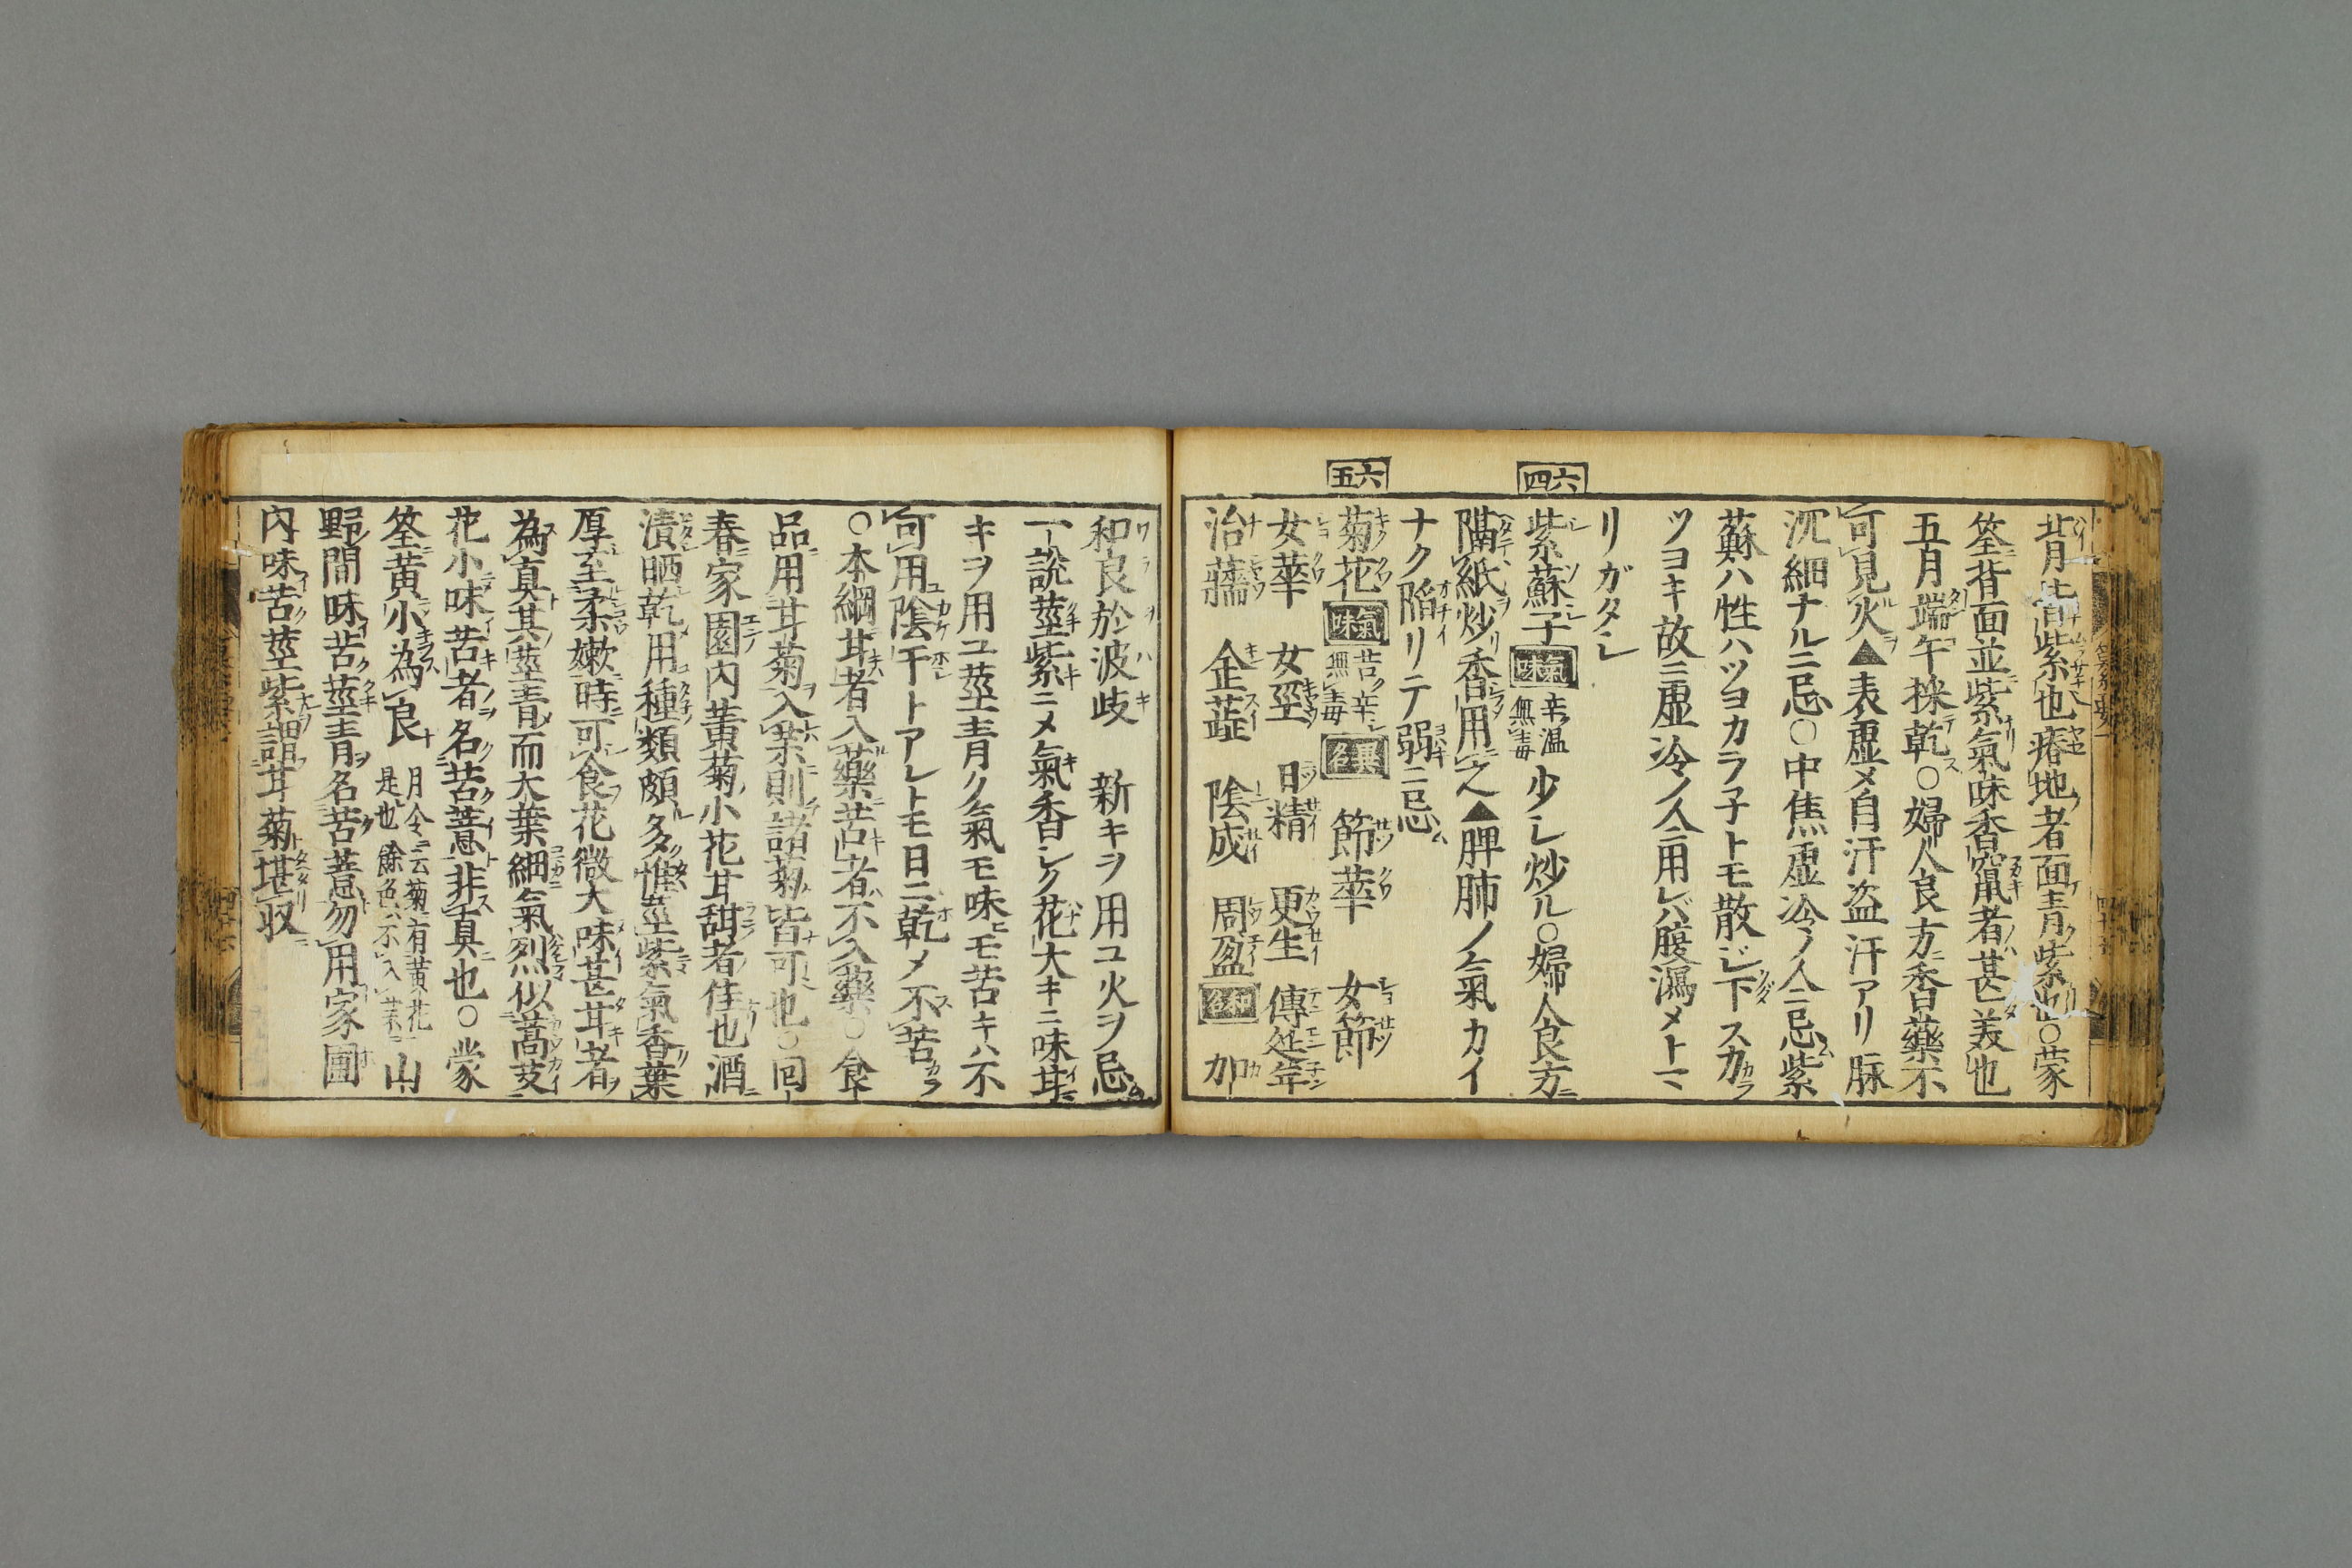 背皆紫也瘠地者面青紫也○蒙
筌背面並紫氣味香竄者甚美也
五月端午採乾○婦人良方ニ香藥不
可見火▲表虛メ自汗盗汗アリ脉
沉細ナルニ忌○中焦虛冷ノ人ニ忌紫
蘇ハ性ハツヨカラ子トモ散ジ下スカ
ツヨキ故ニ虛冷ノ人ニ用レバ腹瀉メトマ
リガタシ
六四
紫蘇子 氣味 辛温無毒 少シ炒ル○婦人良方ニ
隔紙炒香用之▲脾肺ノ氣カイ
ナク陥リテ弱ニ忌
六五
菊花 氣味 苦辛無毒 異名 節華 女節
女華 女莖 日精 更生 傳延年
治蘠 金蕋 陰成 周盈 和名 加
和良於波岐 新キヲ用ユ火ヲ忌
一說莖紫ニメ氣香シク花大キニ味甘
キヲ用ユ莖青ク氣モ味モ苦キハ不
可用陰干トアレトモ日ニ乾メ不苦
○本綱甘者入藥苦者不入藥○食
品用甘菊入茶則諸菊皆可也○回
春家園内黄菊小花甘甜者佳也酒
漬晒乾用種類頗多惟莖紫氣香葉
厚至柔嫩時可食花微大味甚甘者
為真其莖青而大葉細氣烈似蒿艾
花小味苦者名苦薏非真也○蒙
筌黄小為良 月令ニ云菊有黄花是也餘色不入茉 山
野間味苦莖青名苦薏勿用家圃
内味苦莖紫謂甘菊堪収